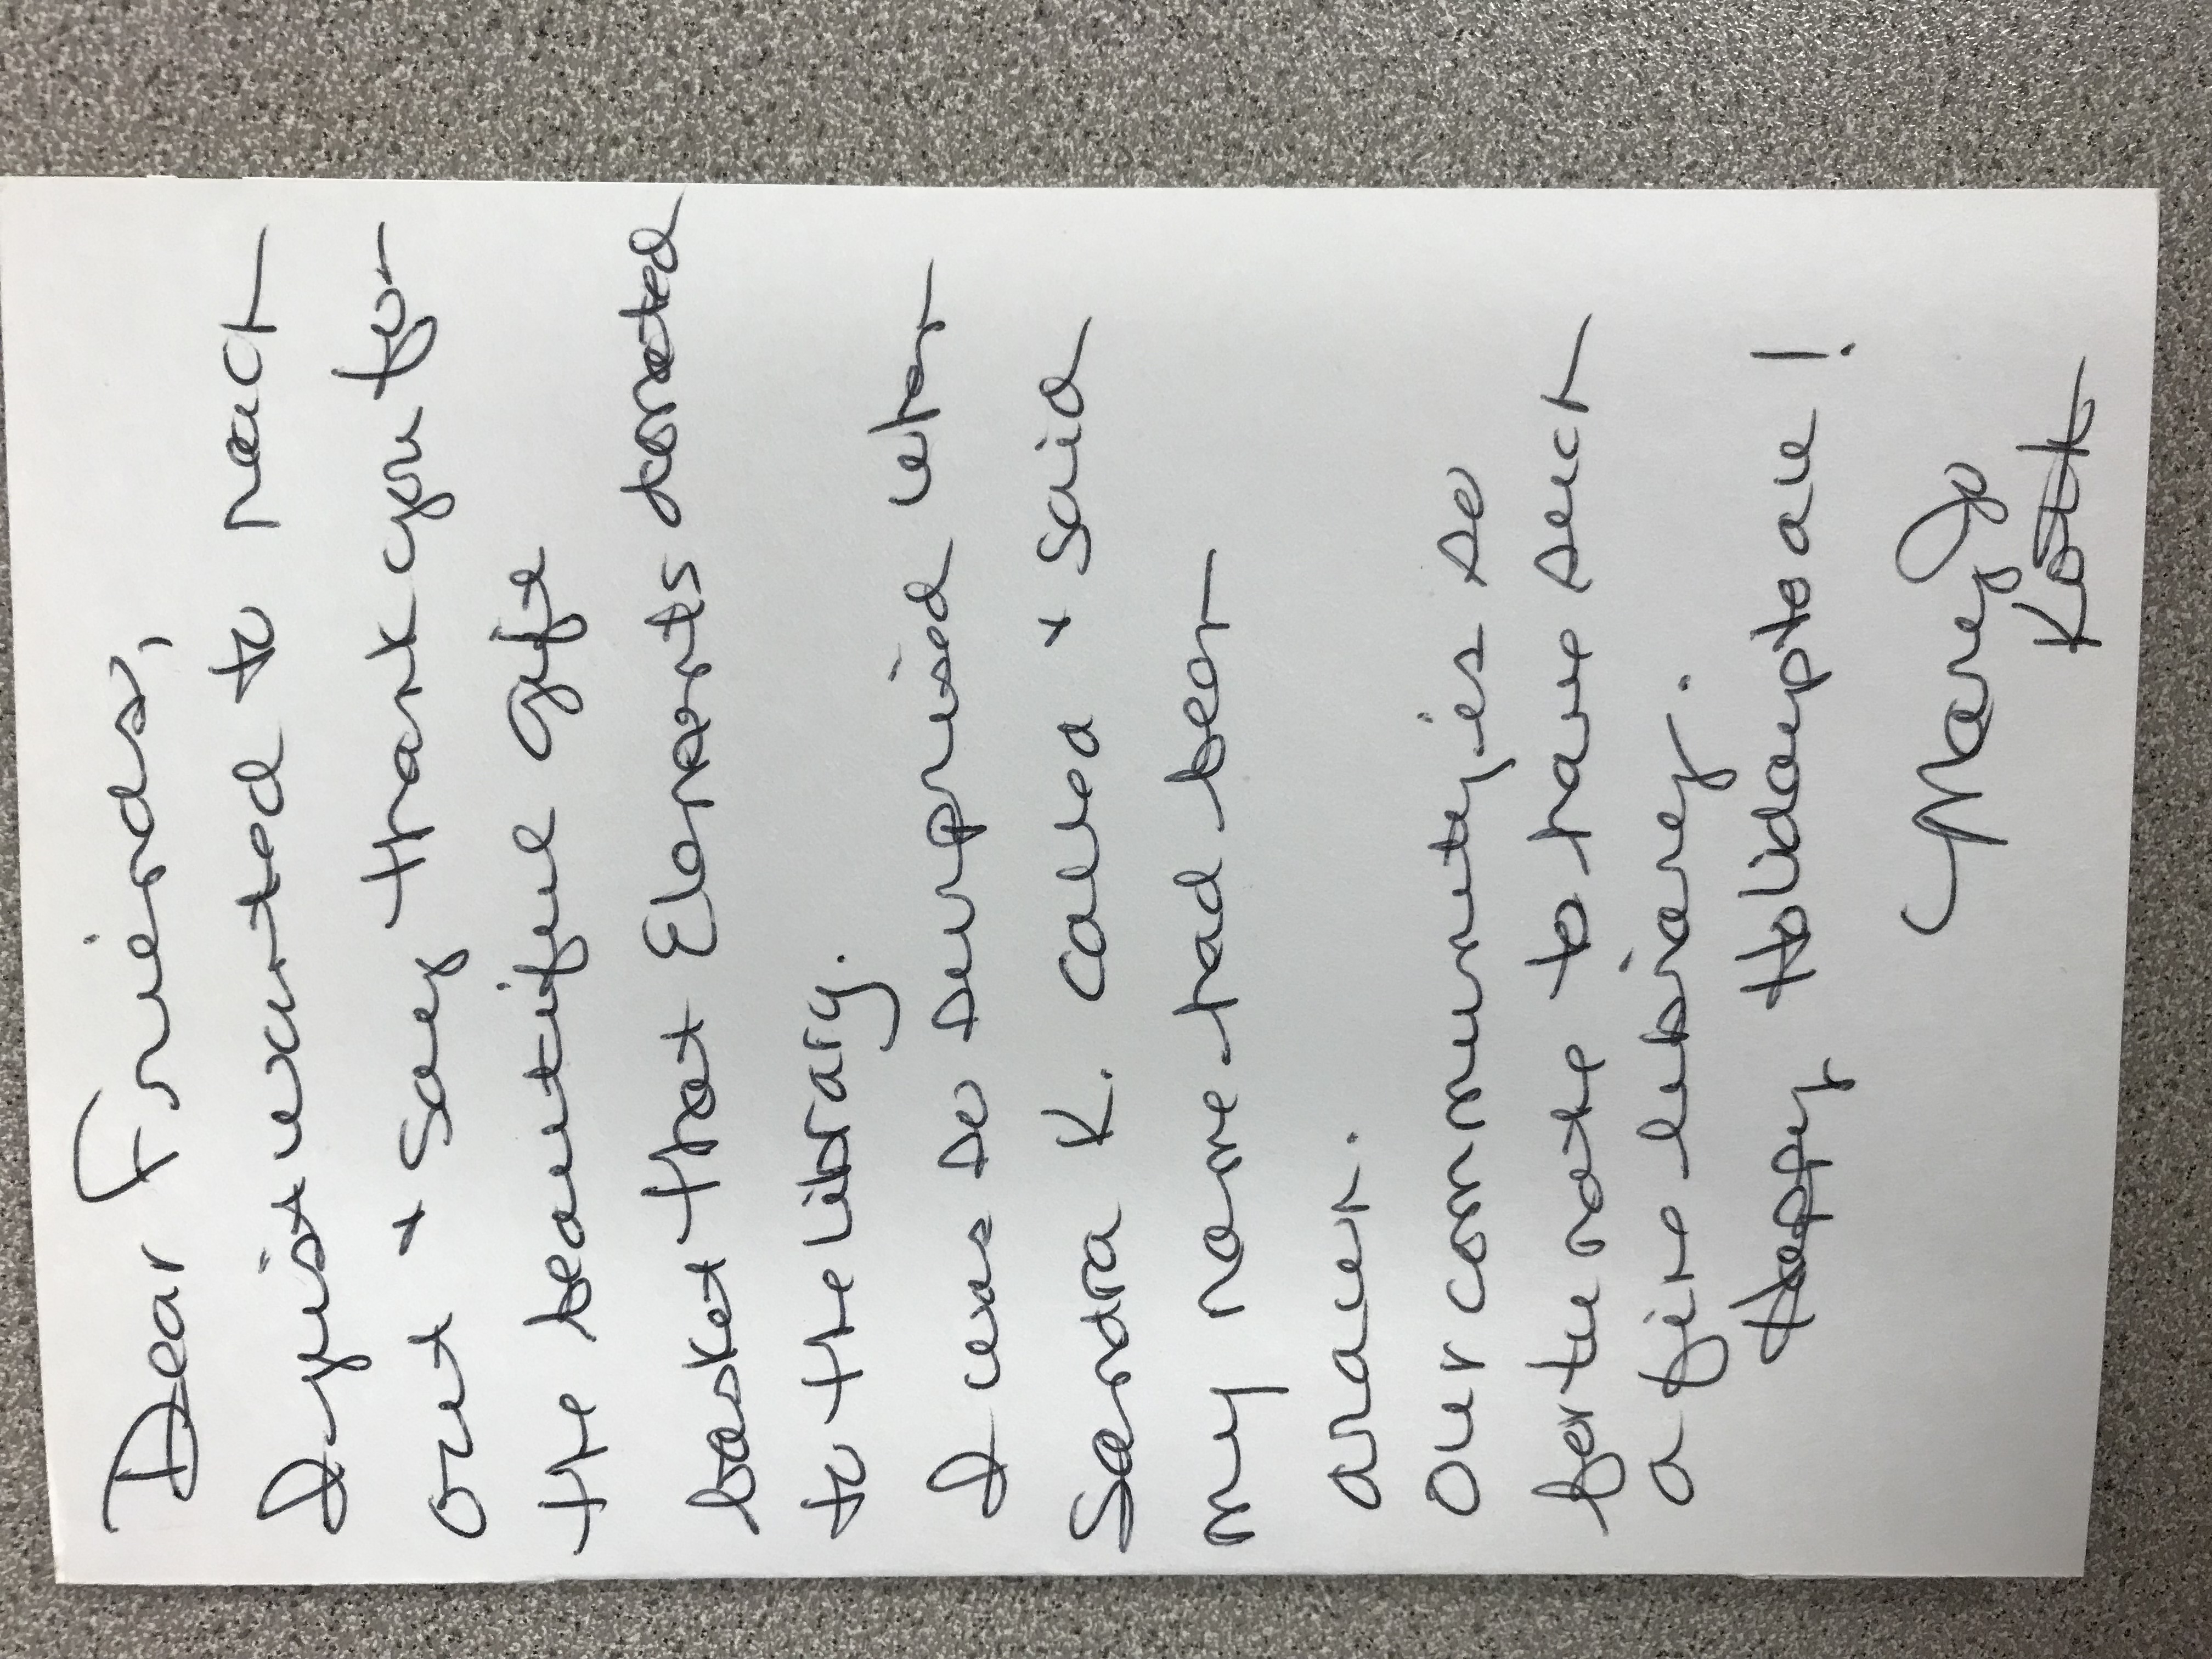 Dear Friends,
I just wanted to reach
out + say thank you for
the beautiful gift
basket that Elements donated
to the library.
I was so surprised when
Sandra K. called + said
my name had been
drawn.
Our community is so
fortunate to have such
a fine library.
Happy Holidays to all!
Mary Jo